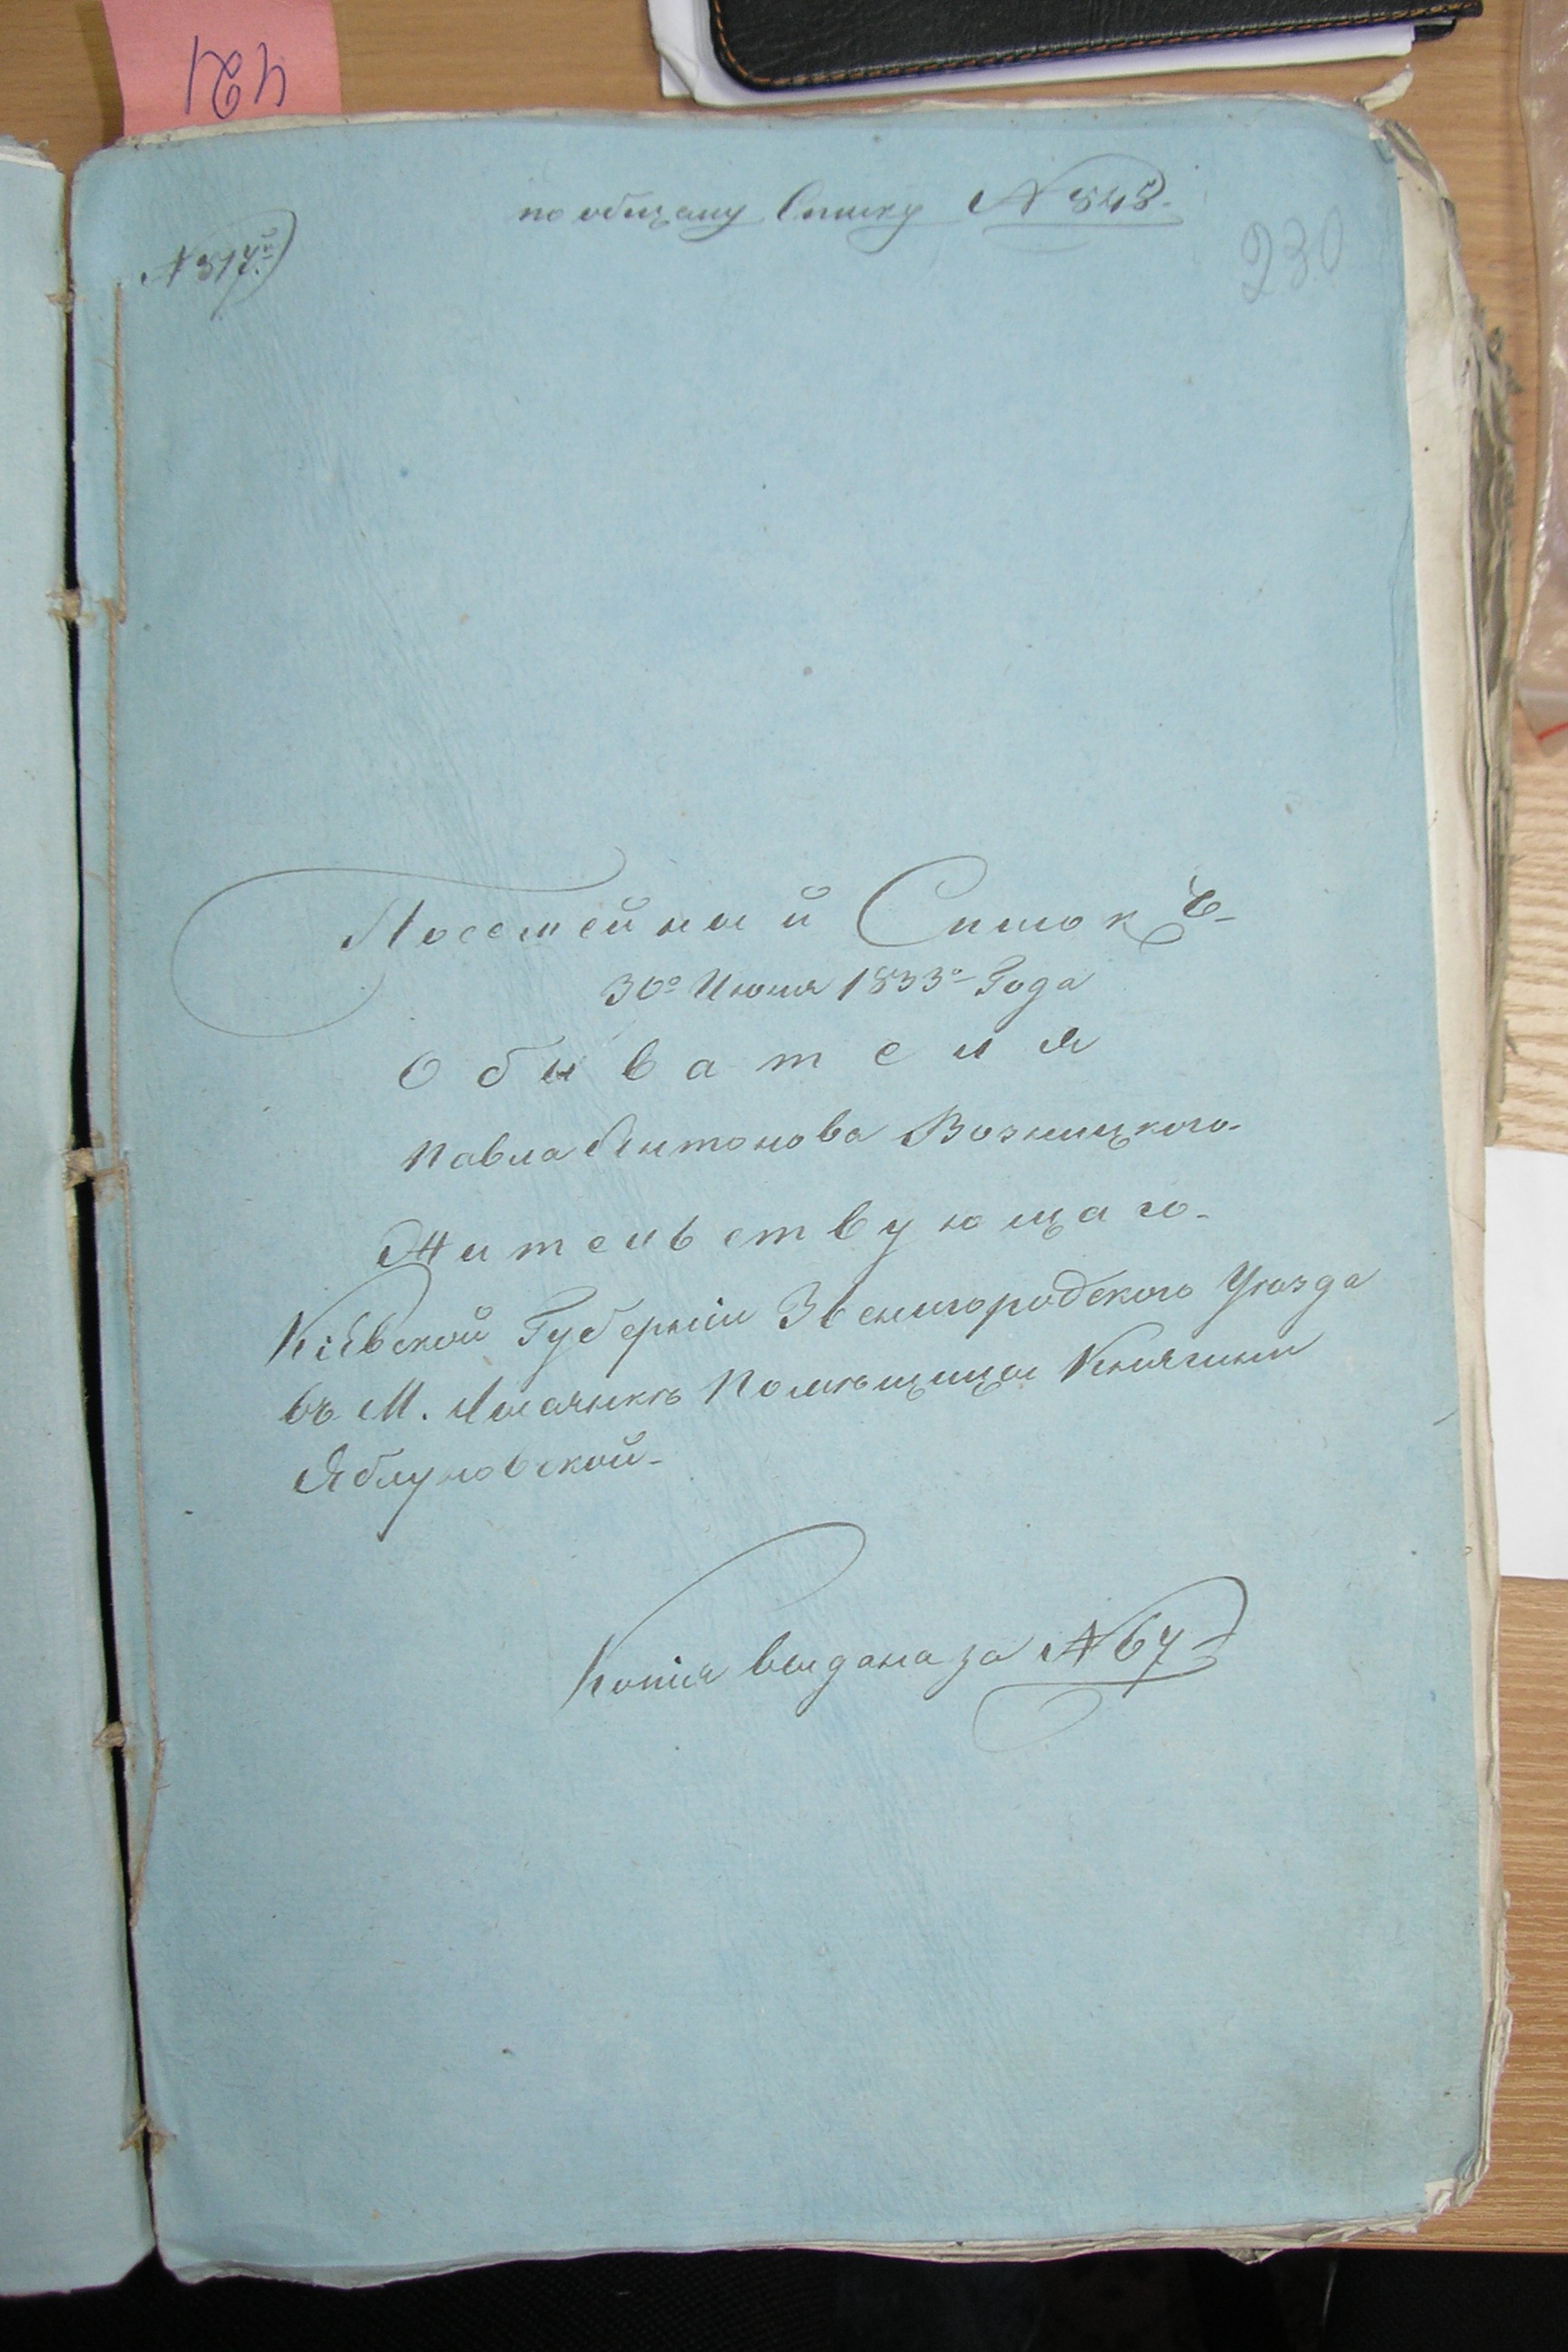 421
по общему Списку № 545.
№ 517й
230
Посемейный Списокъ
30го Июня 1833го Года
Обывателя
Павла Антонова Возницкого
Жительствующаго
Кіевской Губерніи Звенигородского Уезда
въ М. Лысянкѣ Помѣщицы Княгини
Яблуновской
Копія выдана за № 67